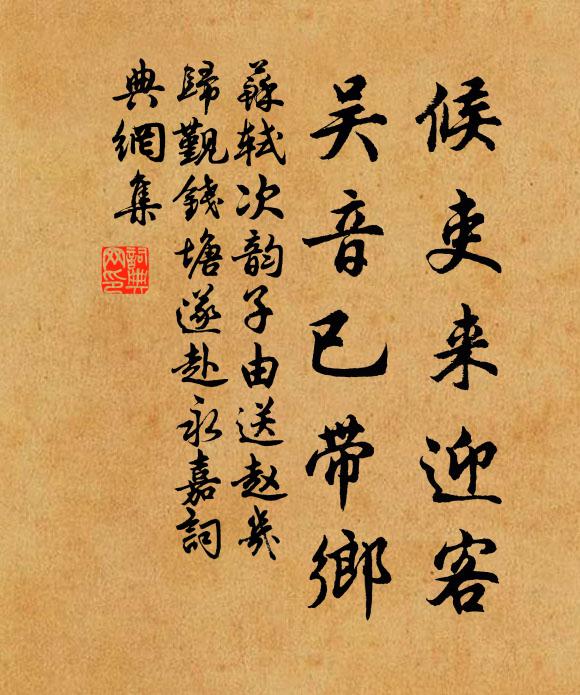 候吏来迎客
吴音已带鄉
蘇轼次韵子由送赵㞦
歸觐錢塘遂赴永嘉詞
典網集
詞典網印